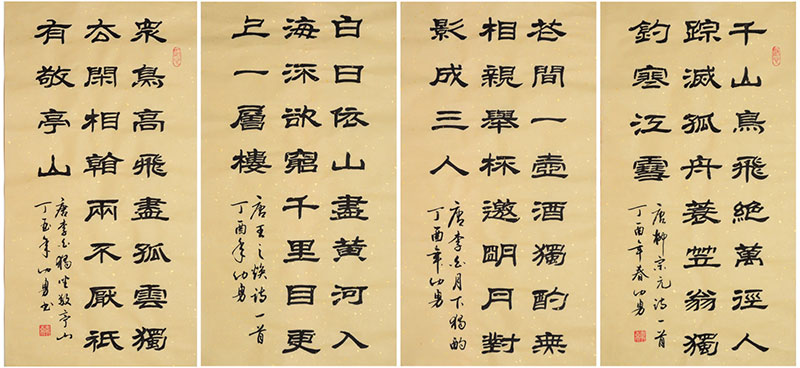 千山鳥飛絶萬徑人
踪滅孤舟蓑笠翁獨
釣寒江雪
唐柳宗元詩一首
丁酉年春幼勇
花間一壺酒獨酌無
相親舉杯邀明月對
影成三人
唐李白月下獨酌
丁酉年幼勇
白日依山盡黄河入
海流欲窮千里目更
上一層樓
唐王之涣詩一首
丁酉年幼勇
衆鳥高飛盡孤雲獨
去閑相看兩不厭祇
有敬亭山
唐李白獨坐敬亭山
丁酉年幼勇書